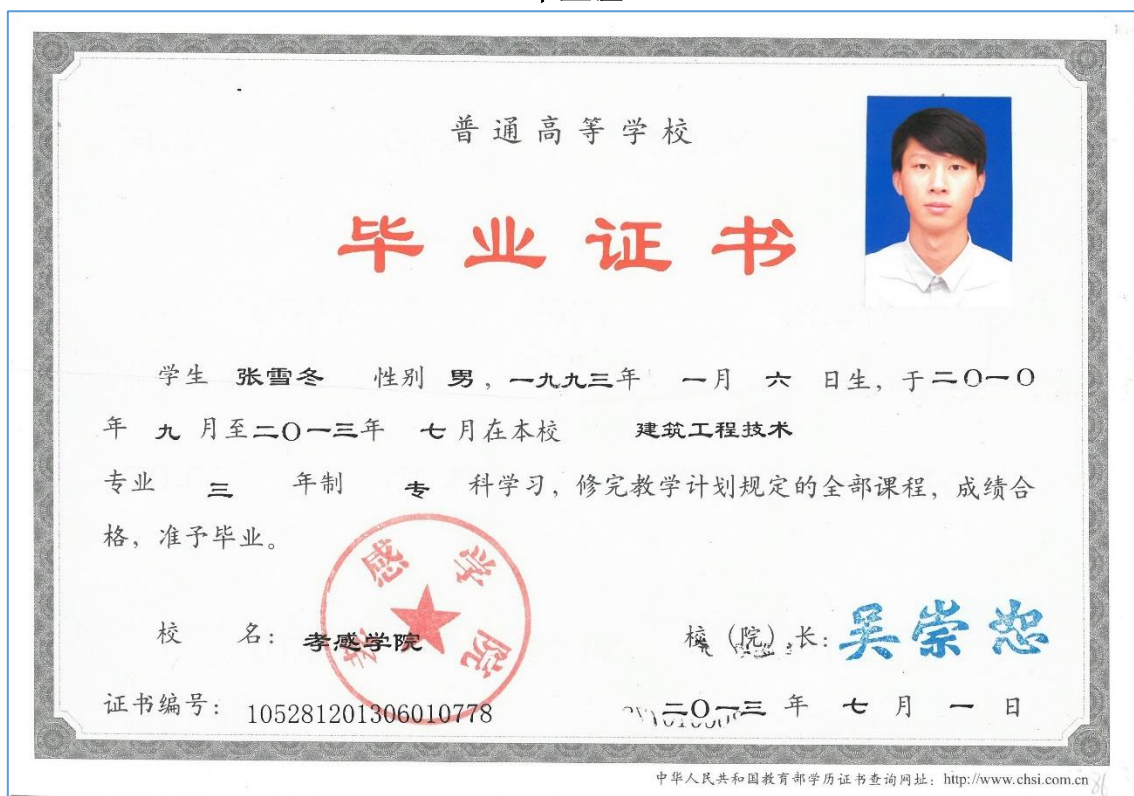 普通高等学校
毕业证书
学生 张雪冬 性别 男，一九九三年 一月 六 日生，于二〇一〇
年 九 月至二〇一三年 七月在本校 建筑工程技术
专业 三 年制 专 科学习，修完教学计划规定的全部课程，成绩合
格，准予毕业。
孝感学院
校 名：孝感学院
校（院）长：吴崇恕
证书编号：105281201306010778
二〇一三 年 七 月 一 日
中华人民共和国教育部学历证书查询网址：http://www.chsi.com.cn